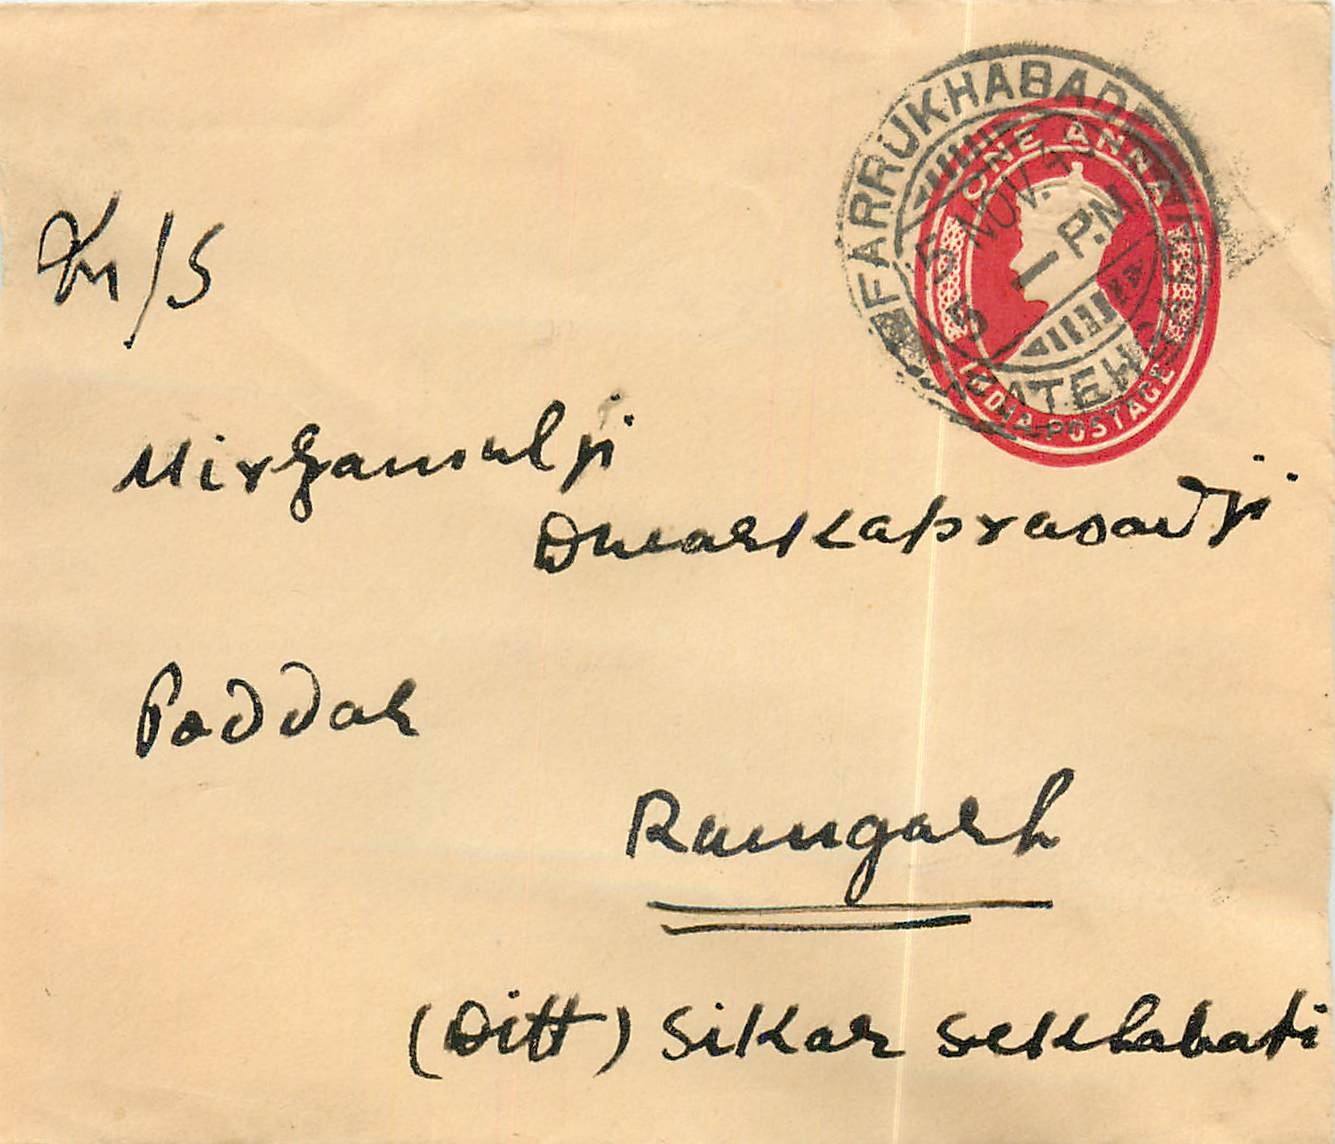 FARRUKHABAD
ONE ANNA
5 NOV. 4
1 P.M
5
FATEH
INDIA POSTAGE
M/S
Mirgamalji
Dwarkaprasadji
Poddar
Ramgarh
(Ditt) Sikar Sekhabati